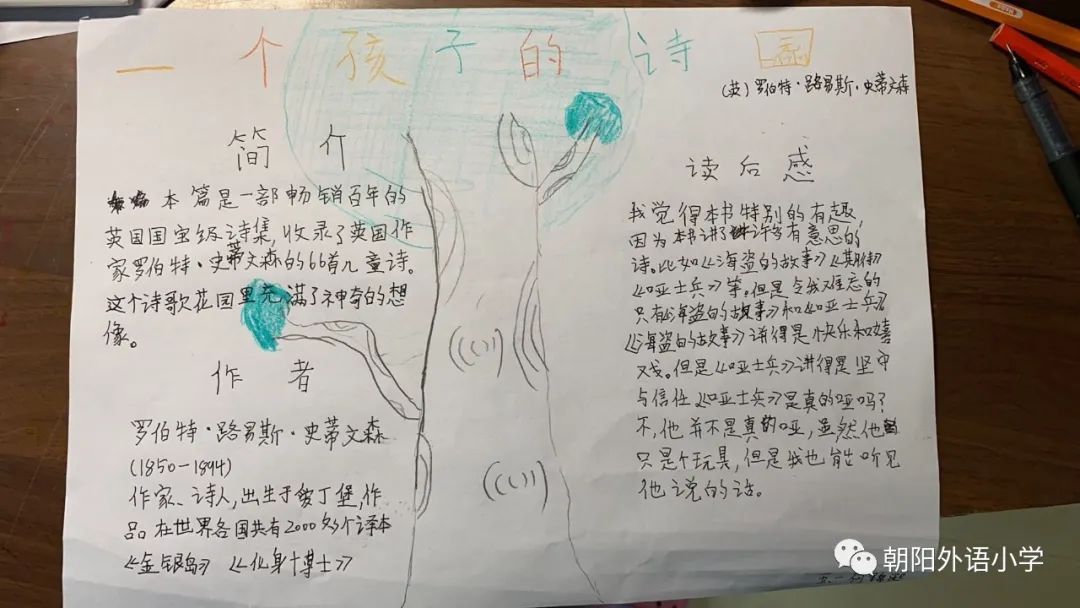 一个孩子的诗园
(英)罗伯特·路易斯·史蒂文森
简介
本篇是一部畅销百年的
英国国宝级诗集,收录了英国作
家罗伯特·史蒂文森的66首儿童诗。
这个诗歌花园里充满了神奇的想
像。
作者
罗伯特·路易斯·史蒂文森
(1850-1894)
作家、诗人,出生于爱丁堡,作
品在世界各国共有2000多个译本
《金银岛》《化身博士》
读后感
我觉得本书特别的有趣,
因为本书讲了许多有意思的
诗。比如《海盗的故事》《期待》
《哑士兵》等。但是令我难忘的
只有《海盗的故事》和《哑士兵》
《海盗的故事》讲得是快乐和嬉
戏。但是《哑士兵》讲得是坚守
与信任《哑士兵》是真的哑吗?
不,他并不是真的哑,虽然他
只是个玩具,但是我也能听见
他说的话。
朝阳外语小学